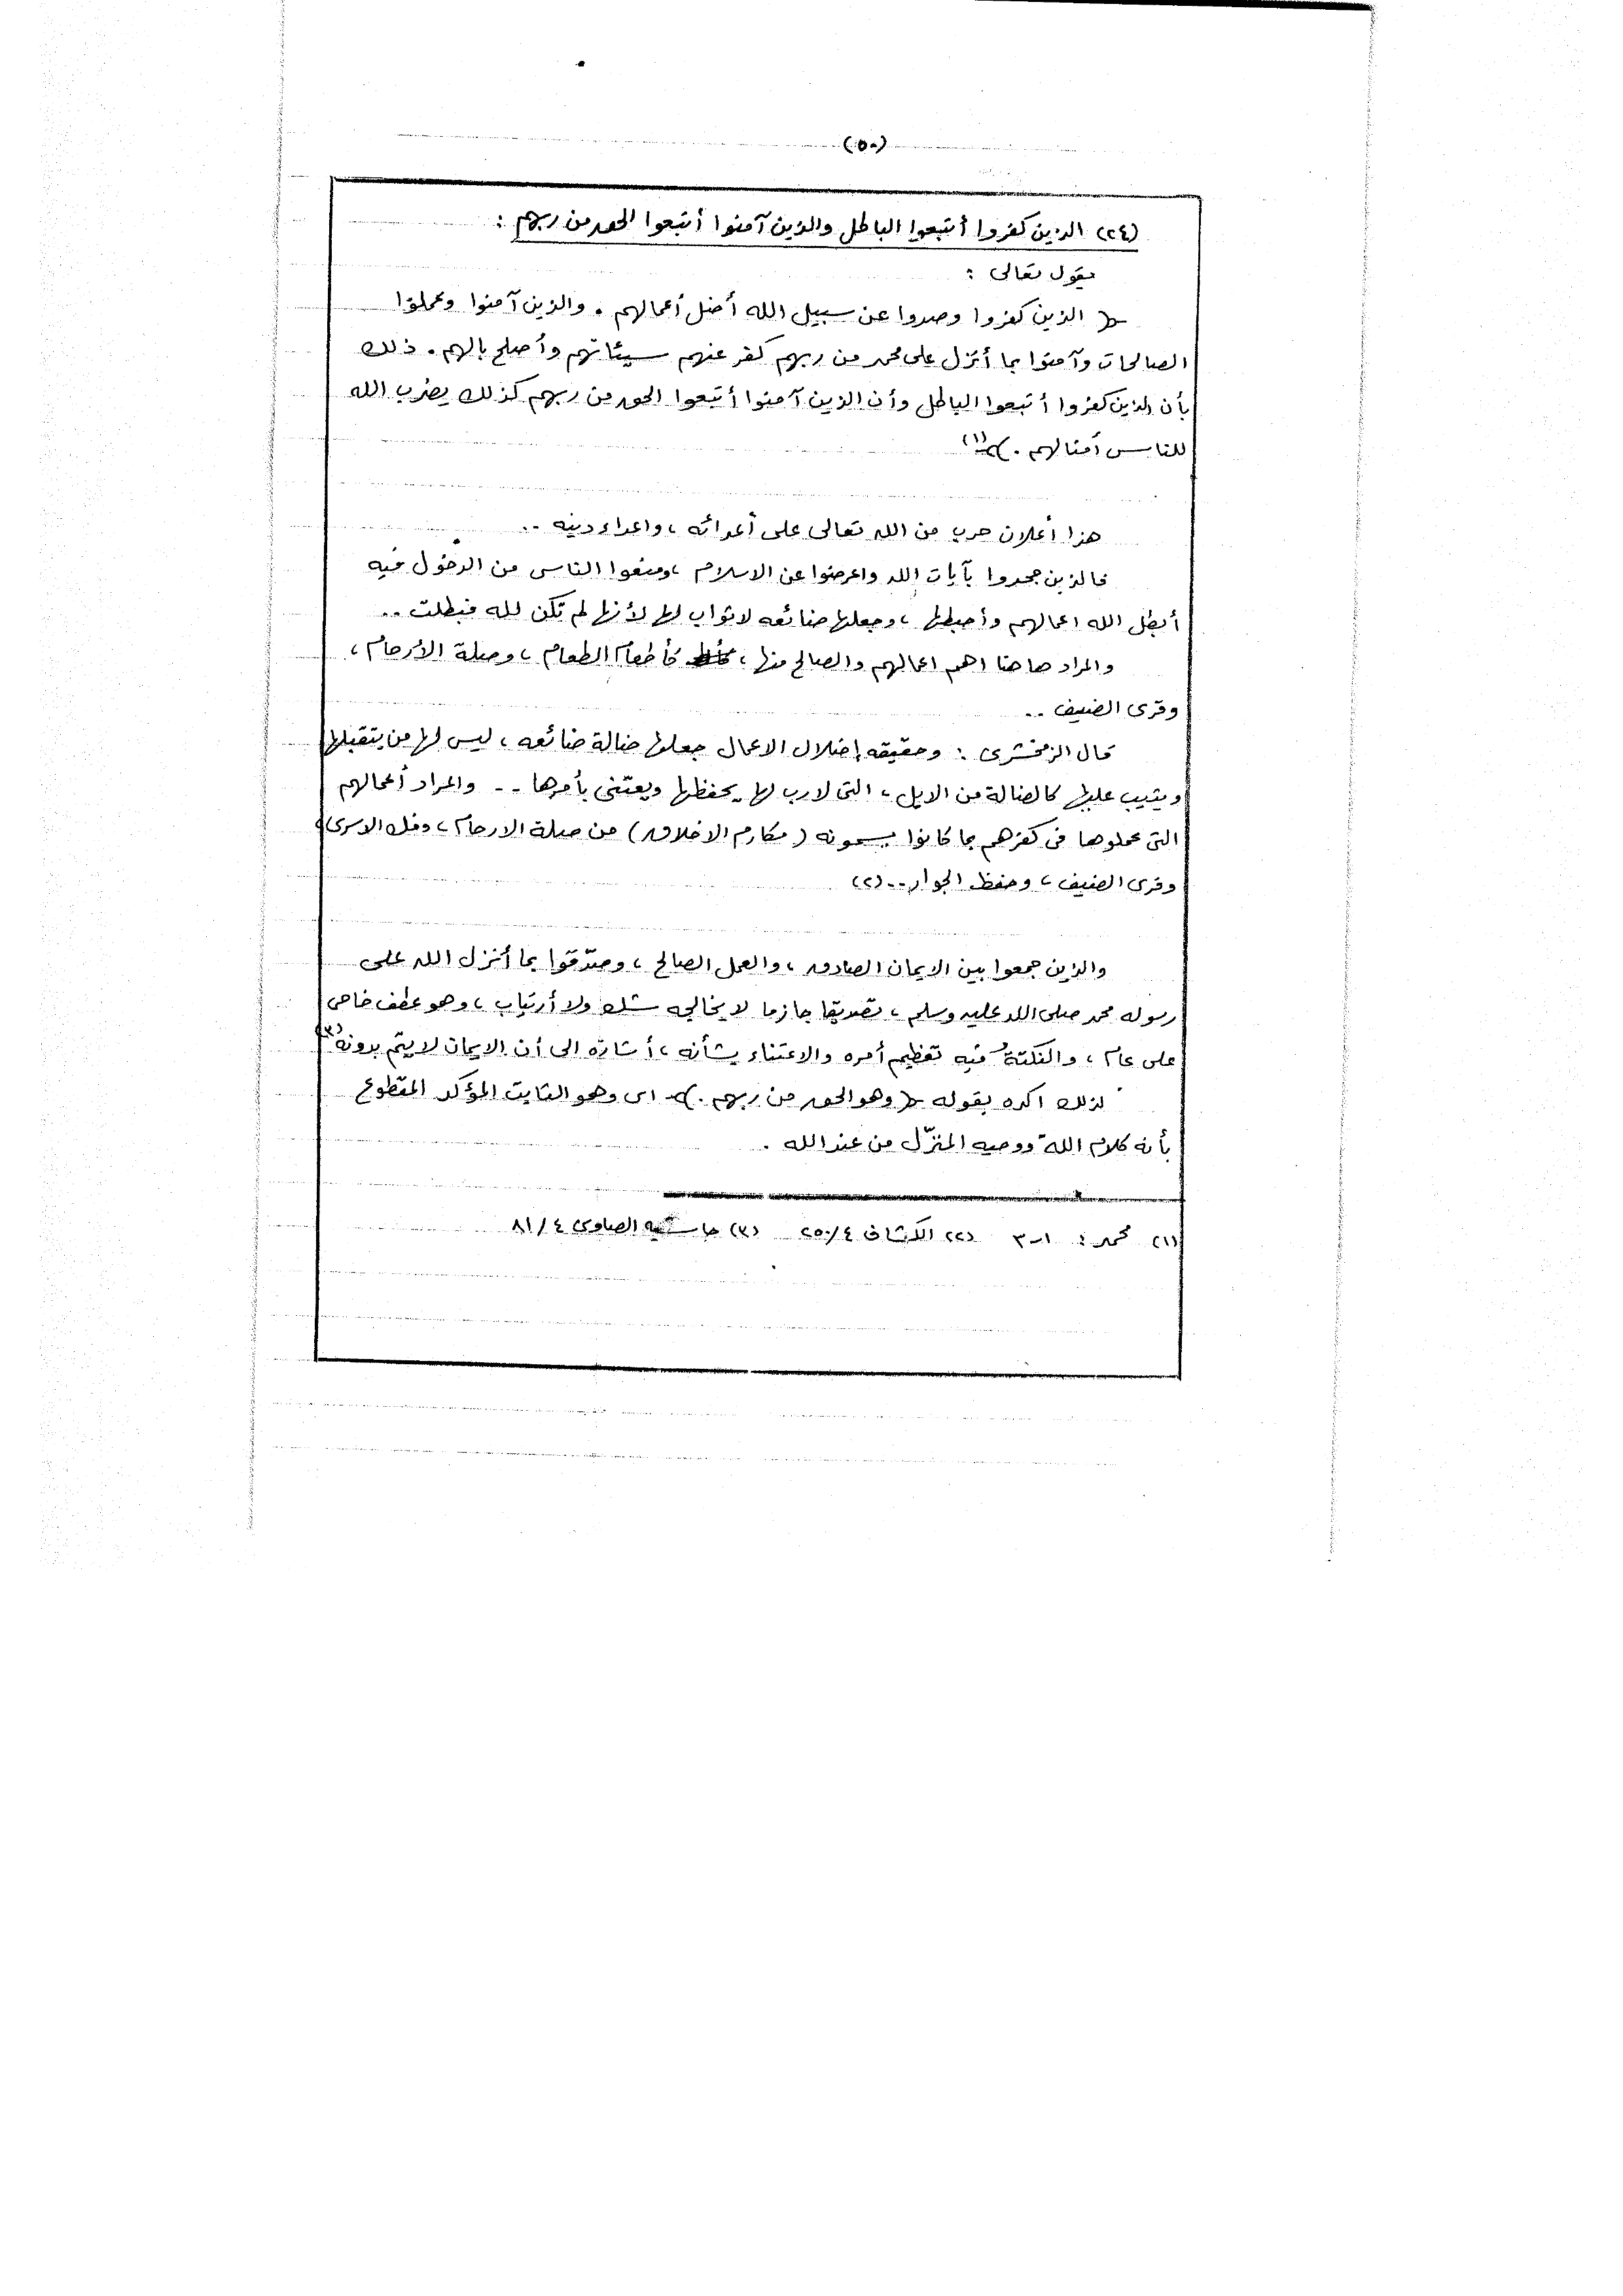 (٥٠)
(٢٤) الذين كفروا أتبعوا الباطل والذين آمنوا أتبعوا الحق من ربهم :
يقول تعالى :
﴿ الذين كفروا وصدوا عن سبيل الله أضل أعمالهم . والذين آمنوا وعملوا
الصالحات وآمنوا بما أنزل على محمد من ربهم كفر عنهم سيئاتهم وأصلح بالهم . ذلك
بأن الذين كفروا أتبعوا الباطل وأن الذين آمنوا أتبعوا الحق من ربهم كذلك يضرب الله
للناس أمثالهم . ﴾(١)
هذا أعلان حرب من الله تعالى على أعدائه ، واعداء دينه ..
فالذين جحدوا بآيات الله واعرضوا عن الاسلام ، ومنعوا الناس من الدخول فيه
أبطل الله اعمالهم وأحبطها ، وجعلها ضائعه لاثواب لها لأنها لم تكن لله فبطلت ..
والمراد هاهنا اهم اعمالهم والصالح منها ، كأطعام الطعام ، وصلة الأرحام ،
وقرى الضيف ..
قال الزمخشرى : وحقيقه إضلال الاعمال جعلها ضالة ضائعه ، ليس لها من يتقبلها
ويثيب عليها كالضالة من الابل ، التى لارب لها يحفظها ويعتنى بأمرها .. والمراد أعمالهم
التى عملوها فى كفرهم بما كانوا يسمونه ( مكارم الاخلاق ) من صلة الارحام ، وفك الاسرى ،
وقرى الضيف ، وحفظ الجوار .. (٢)
والذين جمعوا بين الايمان الصادق ، والعمل الصالح ، وصدّقوا بما أنزل الله على
رسوله محمد صلى الله عليه وسلم ، تصديقا جازما لا يخالجه شك ولا أرتياب ، وهو عطف خاص
على عام ، والنكتة فيه تعظيم أمره والاعتناء بشأنه ، أشارة الى أن الايمان لا يتم بدونه (٣)
لذلك اكده بقوله ﴿ وهو الحق من ربهم . ﴾ اى وهو الثابت المؤكد المقطوع
بأنه كلام الله ووحيه المنزّل من عند الله .
(١) محمد : ١-٣ (٢) الكشاف ٢٥٠/٤ (٣) حاشيه الصاوى ٨١/٤